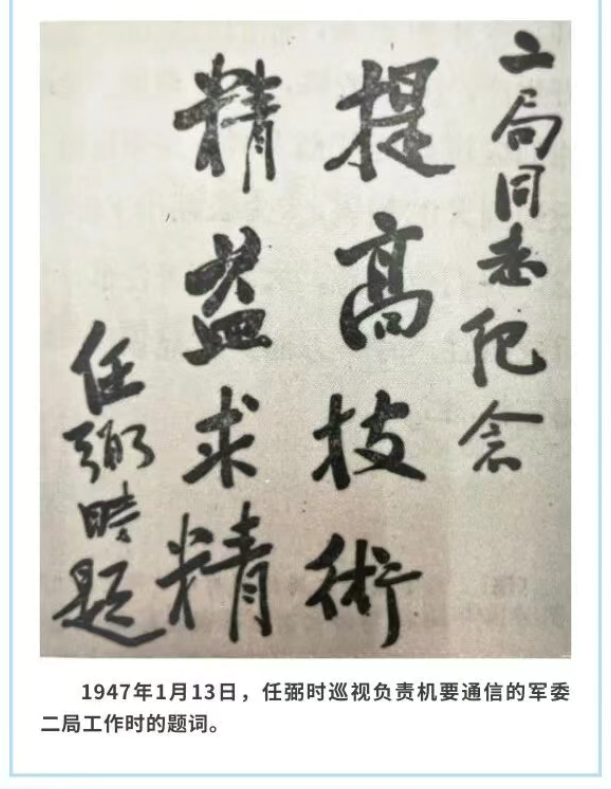 二局同志纪念
提高技術
精益求精
任弼時題
1947年1月13日，任弼时巡视负责机要通信的军委
二局工作时的题词。